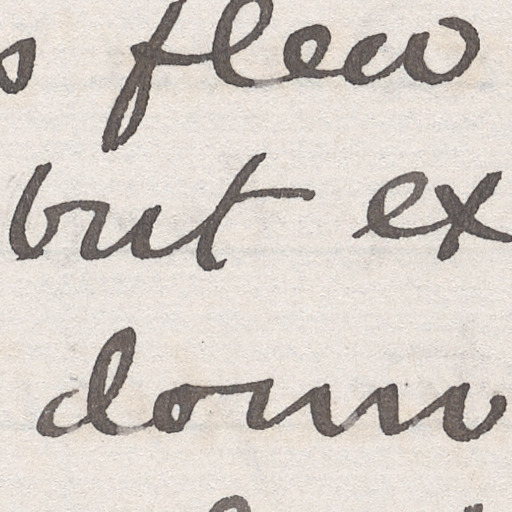 s flew
but ex
down